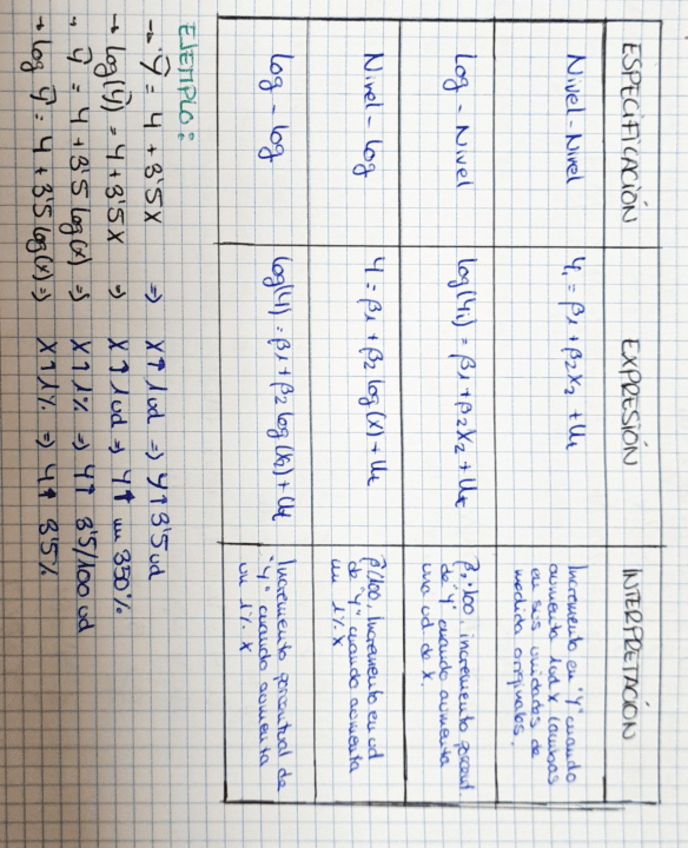 ESPECIFICACIÓN EXPRESIÓN INTERPRETACIÓN
Nivel-Nivel Yᵢ = β₁ + β₂X₂ + Uₜ Incremento en "Y" cuando
aumenta 1ud X (ambas
en sus unidades de
medida originales.
Log - Nivel log(Yᵢ) = β₁ + β₂X₂ + Uₜ β₂·100, incremento porcent.
de "Y" cuando aumenta
una ud de X.
Nivel - log Y = β₁ + β₂ log(x) + Uₜ β/100, Incremento en ud
de "Y" cuando aumenta
un 1% X
log - log log(Y) = β₁ + β₂ log(X₂) + Uₜ Incremento porcentual de
"Y" cuando aumenta
un 1% X
EJEMPLO:
→ Ŷ = 4 + 3'5X ⇒ X↑ 1ud ⇒ Y↑ 3'5 ud
→ log(Ŷ) = 4 + 3'5X ⇒ X↑ 1ud ⇒ Y↑ un 350%
→ Ŷ = 4 + 3'5 log(x) ⇒ X↑ 1% ⇒ Y↑ 3'5/100 ud
→ log Ŷ = 4 + 3'5 log(x) ⇒ X↑ 1% ⇒ Y↑ 3'5%